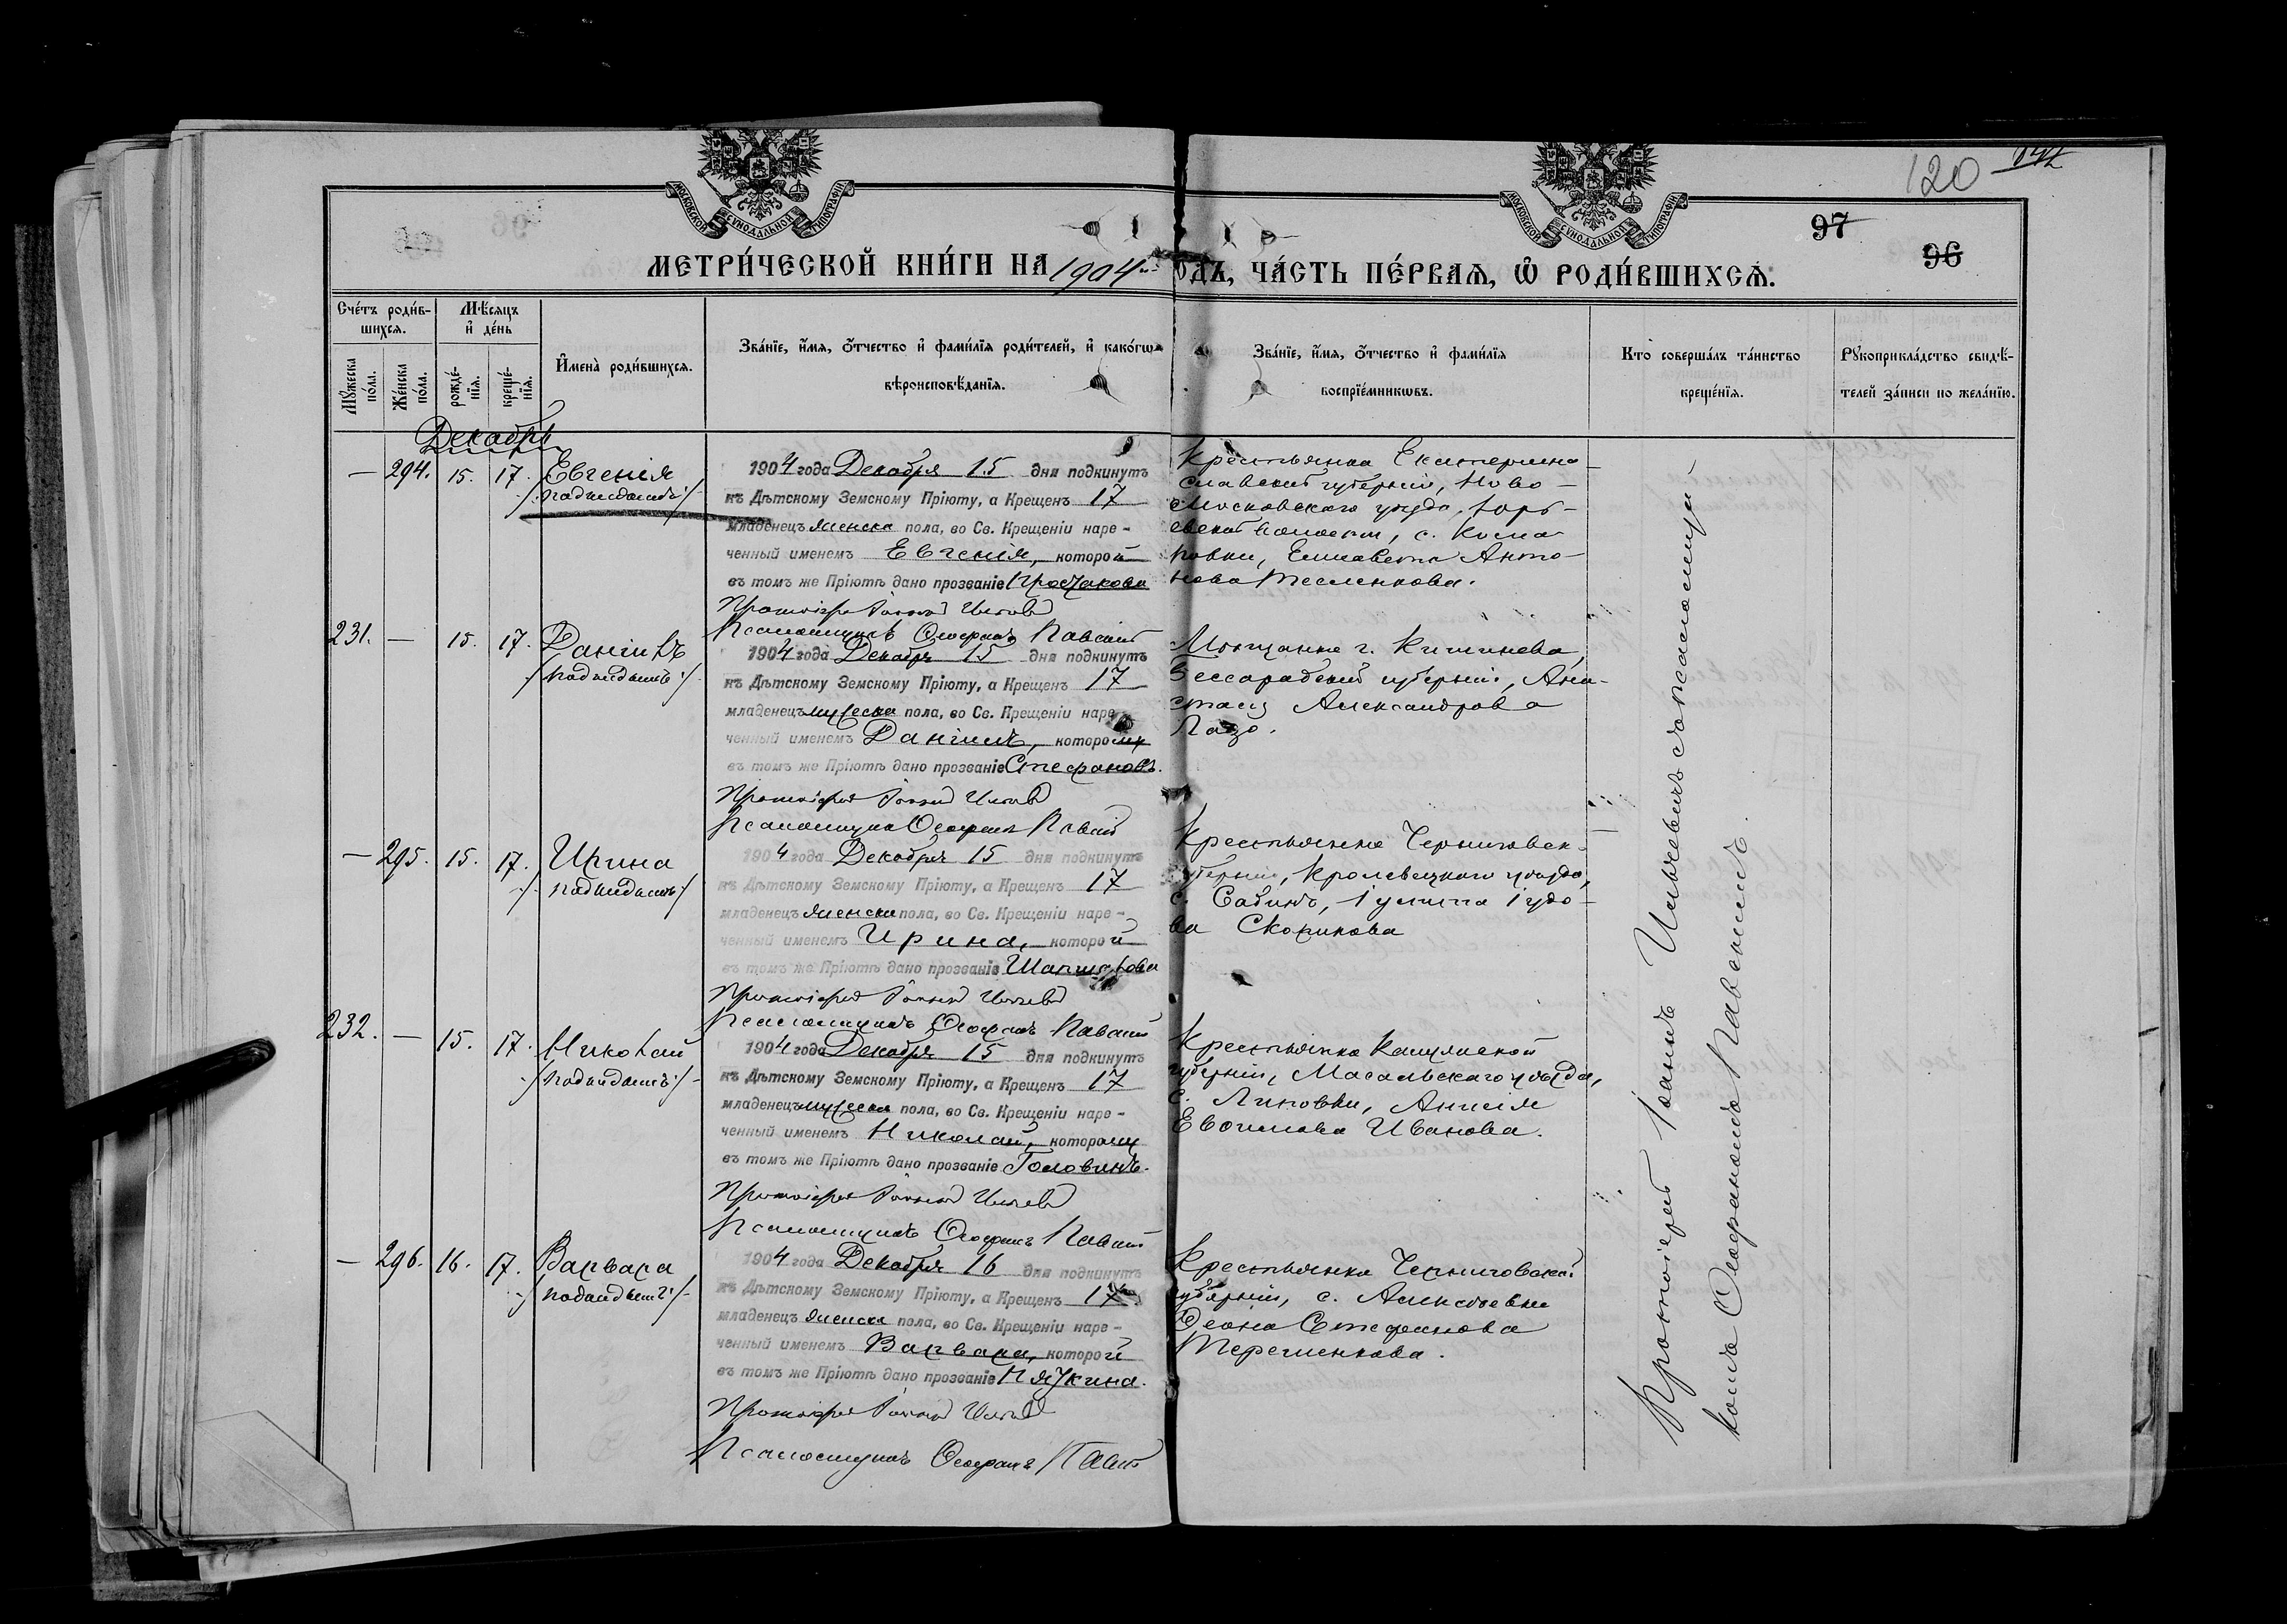 120
97
96
МОСКОВСКОЙ СѴНОДАЛЬНОЙ ТИПОГРАФІИ
МОСКОВСКОЙ СѴНОДАЛЬНОЙ ТИПОГРАФІИ
МЕТРИ́ЧЕСКОЙ КНИ́ГИ НА 1904 ОДЪ, ЧА́СТЬ ПЕ́РВАЯ, Ѡ҆ РОДИ́ВШИХСЯ.
Сче́тъ роди́в-
шихся.
Мꙋ́жеска по́ла.
Же́нска по́ла.
Мѣ́сяцъ и҆ де́нь
рожде́-
нїя.
креще́-
нїя.
И҆мена̀ роди́вшихся.
Зва́нїе, и҆́мя, о҆́тчество и҆ фами́лїя роди́телей, и҆ како́гѡ
вѣроисповѣ́данїя.
Зва́нїе, и҆́мя, о҆́тчество и҆ фами́лїя
воспрїе́мникѡвъ.
Кто̀ соверша́лъ та́инство
креще́нїя.
Рꙋкоприкла́дство свидѣ́-
телей за́писи по жела́нїю.
Декабрь
— 294. 15. 17. Евгенія
/подкидышъ/
1904 года Декабря 15 дня подкинутъ
къ Дѣтскому Земскому Пріюту, а Крещенъ 17
младенецъ женска пола, во Св. Крещеніи наре-
ченный именемъ Евгенія, которой
въ томъ же Пріютѣ дано прозваніе
Протоіерей Іоаннъ
Псаломщикъ Ѳеофанъ Павскій
Крестьянка Екатерино-
славской губерніи, Ново-
московскаго уѣзда,
волости, с.
Елисавета Анто-
нова Тесленкова.
231. — 15. 17. Даніилъ
/подкидышъ/
1904 года Декабря 15 дня подкинутъ
къ Дѣтскому Земскому Пріюту, а Крещенъ 17
младенецъ мужеска пола, во Св. Крещеніи наре-
ченный именемъ Даніилъ, которому
въ томъ же Пріютѣ дано прозваніе Стефановъ.
Протоіерей Іоаннъ
Псаломщикъ Ѳеофанъ Павскій
Мѣщанка г. Кишинева,
Бессарабской губерніи, Ана-
стасія Александрова
Лазо.
— 295. 15. 17. Ирина
/подкидышъ/
1904 года Декабря 15 дня подкинутъ
къ Дѣтскому Земскому Пріюту, а Крещенъ 17
младенецъ женска пола, во Св. Крещеніи наре-
ченный именемъ Ирина, которой
въ томъ же Пріютѣ дано прозваніе
Протоіерей Іоаннъ
Псаломщикъ Ѳеофанъ Павскій
Крестьянка Черниговск.
губерніи, Кролевецкаго уѣзда,
с.
Скорикова
232. — 15. 17. Николай
/подкидышъ/
1904 года Декабря 15 дня подкинутъ
къ Дѣтскому Земскому Пріюту, а Крещенъ 17
младенецъ мужеска пола, во Св. Крещеніи наре-
ченный именемъ Николай, которому
въ томъ же Пріютѣ дано прозваніе Головинъ.
Протоіерей Іоаннъ
Псаломщикъ Ѳеофанъ Павскій
Крестьянка Калужской
губерніи, Масальскаго уѣзда,
с. Липовки, Анисія
Евѳимова Иванова.
— 296. 16. 17. Варвара
/подкидышъ/
1904 года Декабря 16 дня подкинутъ
къ Дѣтскому Земскому Пріюту, а Крещенъ 17
младенецъ женска пола, во Св. Крещеніи наре-
ченный именемъ Варвара, которой
въ томъ же Пріютѣ дано прозваніе
Протоіерей Іоаннъ
Псаломщикъ Ѳеофанъ Павскій
Крестьянка Черниговской
губерніи, с. Алексѣевки
Стефанова
Терещенкова.
Протоіерей Іоаннъ съ псаломщи-
комъ Ѳеофаномъ Павскимъ.